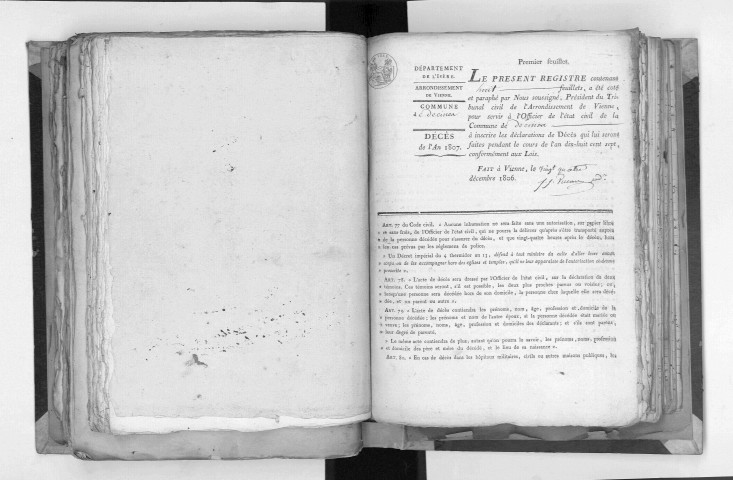 Premier feuillet.
DÉPARTEMENT
DE L'ISÈRE.
ARRONDISSEMENT
DE VIENNE.
COMMUNE
DÉCÈS
de l'An 1807.
LE PRESENT REGISTRE contenant
huit feuillets, a été coté
et paraphé par Nous soussigné, Président du Tri-
bunal civil de l'Arrondissement de Vienne,
pour servir à l'Officier de l'état civil de la
Commune de
à inscrire les déclarations de Décès qui lui seront
faites pendant le cours de l'an dix-huit cent sept,
conformément aux Lois.
FAIT à Vienne, le vingt
décembre 1806.
ART. 77 du Code civil. « Aucune inhumation ne sera faite sans une autorisation, sur papier libre
» et sans frais, de l'Officier de l'état civil, qui ne pourra la délivrer qu'après s'être transporté auprès
» de la personne décédée pour s'assurer du décès, et que vingt-quatre heures après le décès, hors
» les cas prévus par les réglemens de police.
» Un Décret impérial du 4 thermidor an 13, défend à tout ministre du culte d'aller lever aucun
corps ou de les accompagner hors des églises et temples, qu'il ne leur apparaisse de l'autorisation
ART. 78. « L'acte de décès sera dressé par l'Officier de l'état civil, sur la déclaration de deux
» témoins. Ces témoins seront, s'il est possible, les deux plus proches parens ou voisins; ou,
» lorsqu'une personne sera décédée hors de son domicile, la personne chez laquelle elle sera décé-
» dée, et un parent ou autre ».
ART. 79. « L'acte de décès contiendra les prénoms, nom, âge, profession et domicile de la
» personne décédée; les prénoms et nom de l'autre époux, si la personne décédée était mariée ou
» veuve; les prénoms, noms, âge, profession et domiciles des déclarans; et s'ils sont parens,
» leur degré de parenté.
» Le même acte contiendra de plus, autant qu'on pourra le savoir, les prénoms, noms, profession
» et domicile des père et mère du décédé, et le lieu de sa naissance ».
ART. 80. « En cas de décès dans les hôpitaux militaires, civils ou autres maisons publiques, les